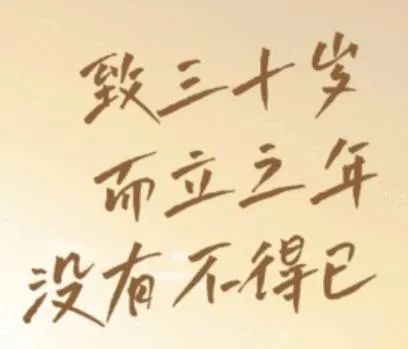 致三十岁
而立之年
没有不得已